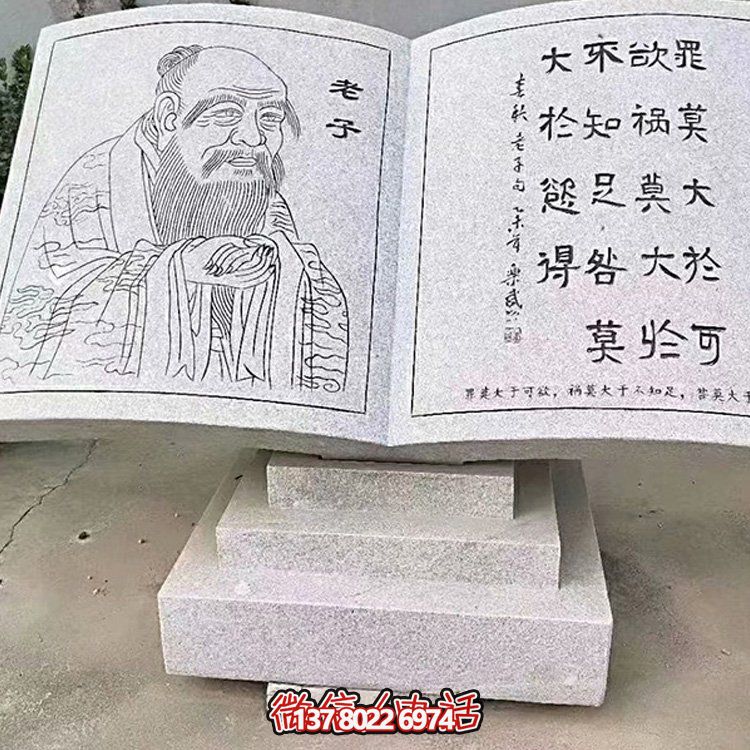 老子
罪莫大於可
欲祸莫大於
不知足，咎莫
大於慾得
春秋老子句
罪莫大于可欲，祸莫大于不知足，咎莫大于
微信/电话
13780226974